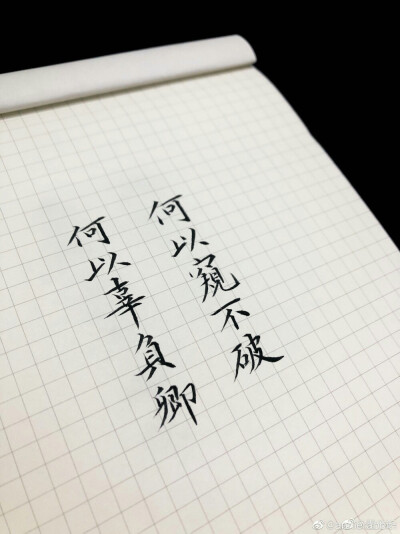 何以窺不破
何以辜負卿